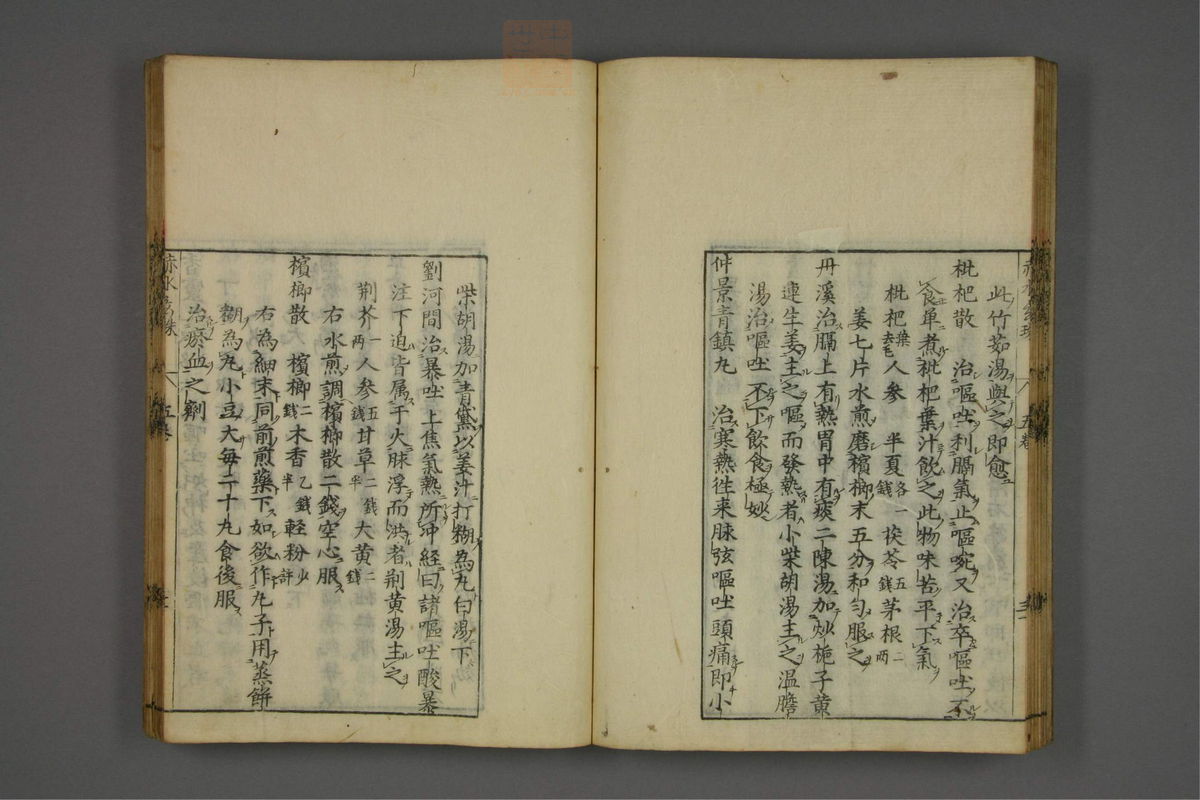 此竹茹湯與之即愈
枇杷散　治嘔吐利膈氣止嘔啘又治卒嘔吐不
食单煮枇杷葉汁飲之此物味苦平下氣
枇杷葉去毛人参　半夏各一錢茯苓五錢茅根二两
姜七片水煎磨檳榔末五分和匀服之
丹溪治膈上有熱胃中有痰二陳湯加炒梔子黄
連生姜主之嘔而發熱者小柴胡湯主之温膽
湯治嘔吐不下飲食極妙
仲景青鎮丸　治寒熱徃来脉弦嘔吐頭痛即小
柴胡湯加青黛以姜汁打糊為丸白湯下
劉河間治暴吐上焦氣熱所冲經曰諸嘔吐酸暴
注下迫皆属于火脉浮而洪者荆黄湯主之
荆芥一两人参五錢甘草二錢半大黄二錢
右水煎調檳榔散二錢空心服
檳榔散　檳榔二錢木香乙錢半軽粉少許
右為細末同前煎藥下如欲作丸子用蒸餅
糊為丸小豆大每二十丸食後服
治瘀血之劑
赤水玄珠
五卷